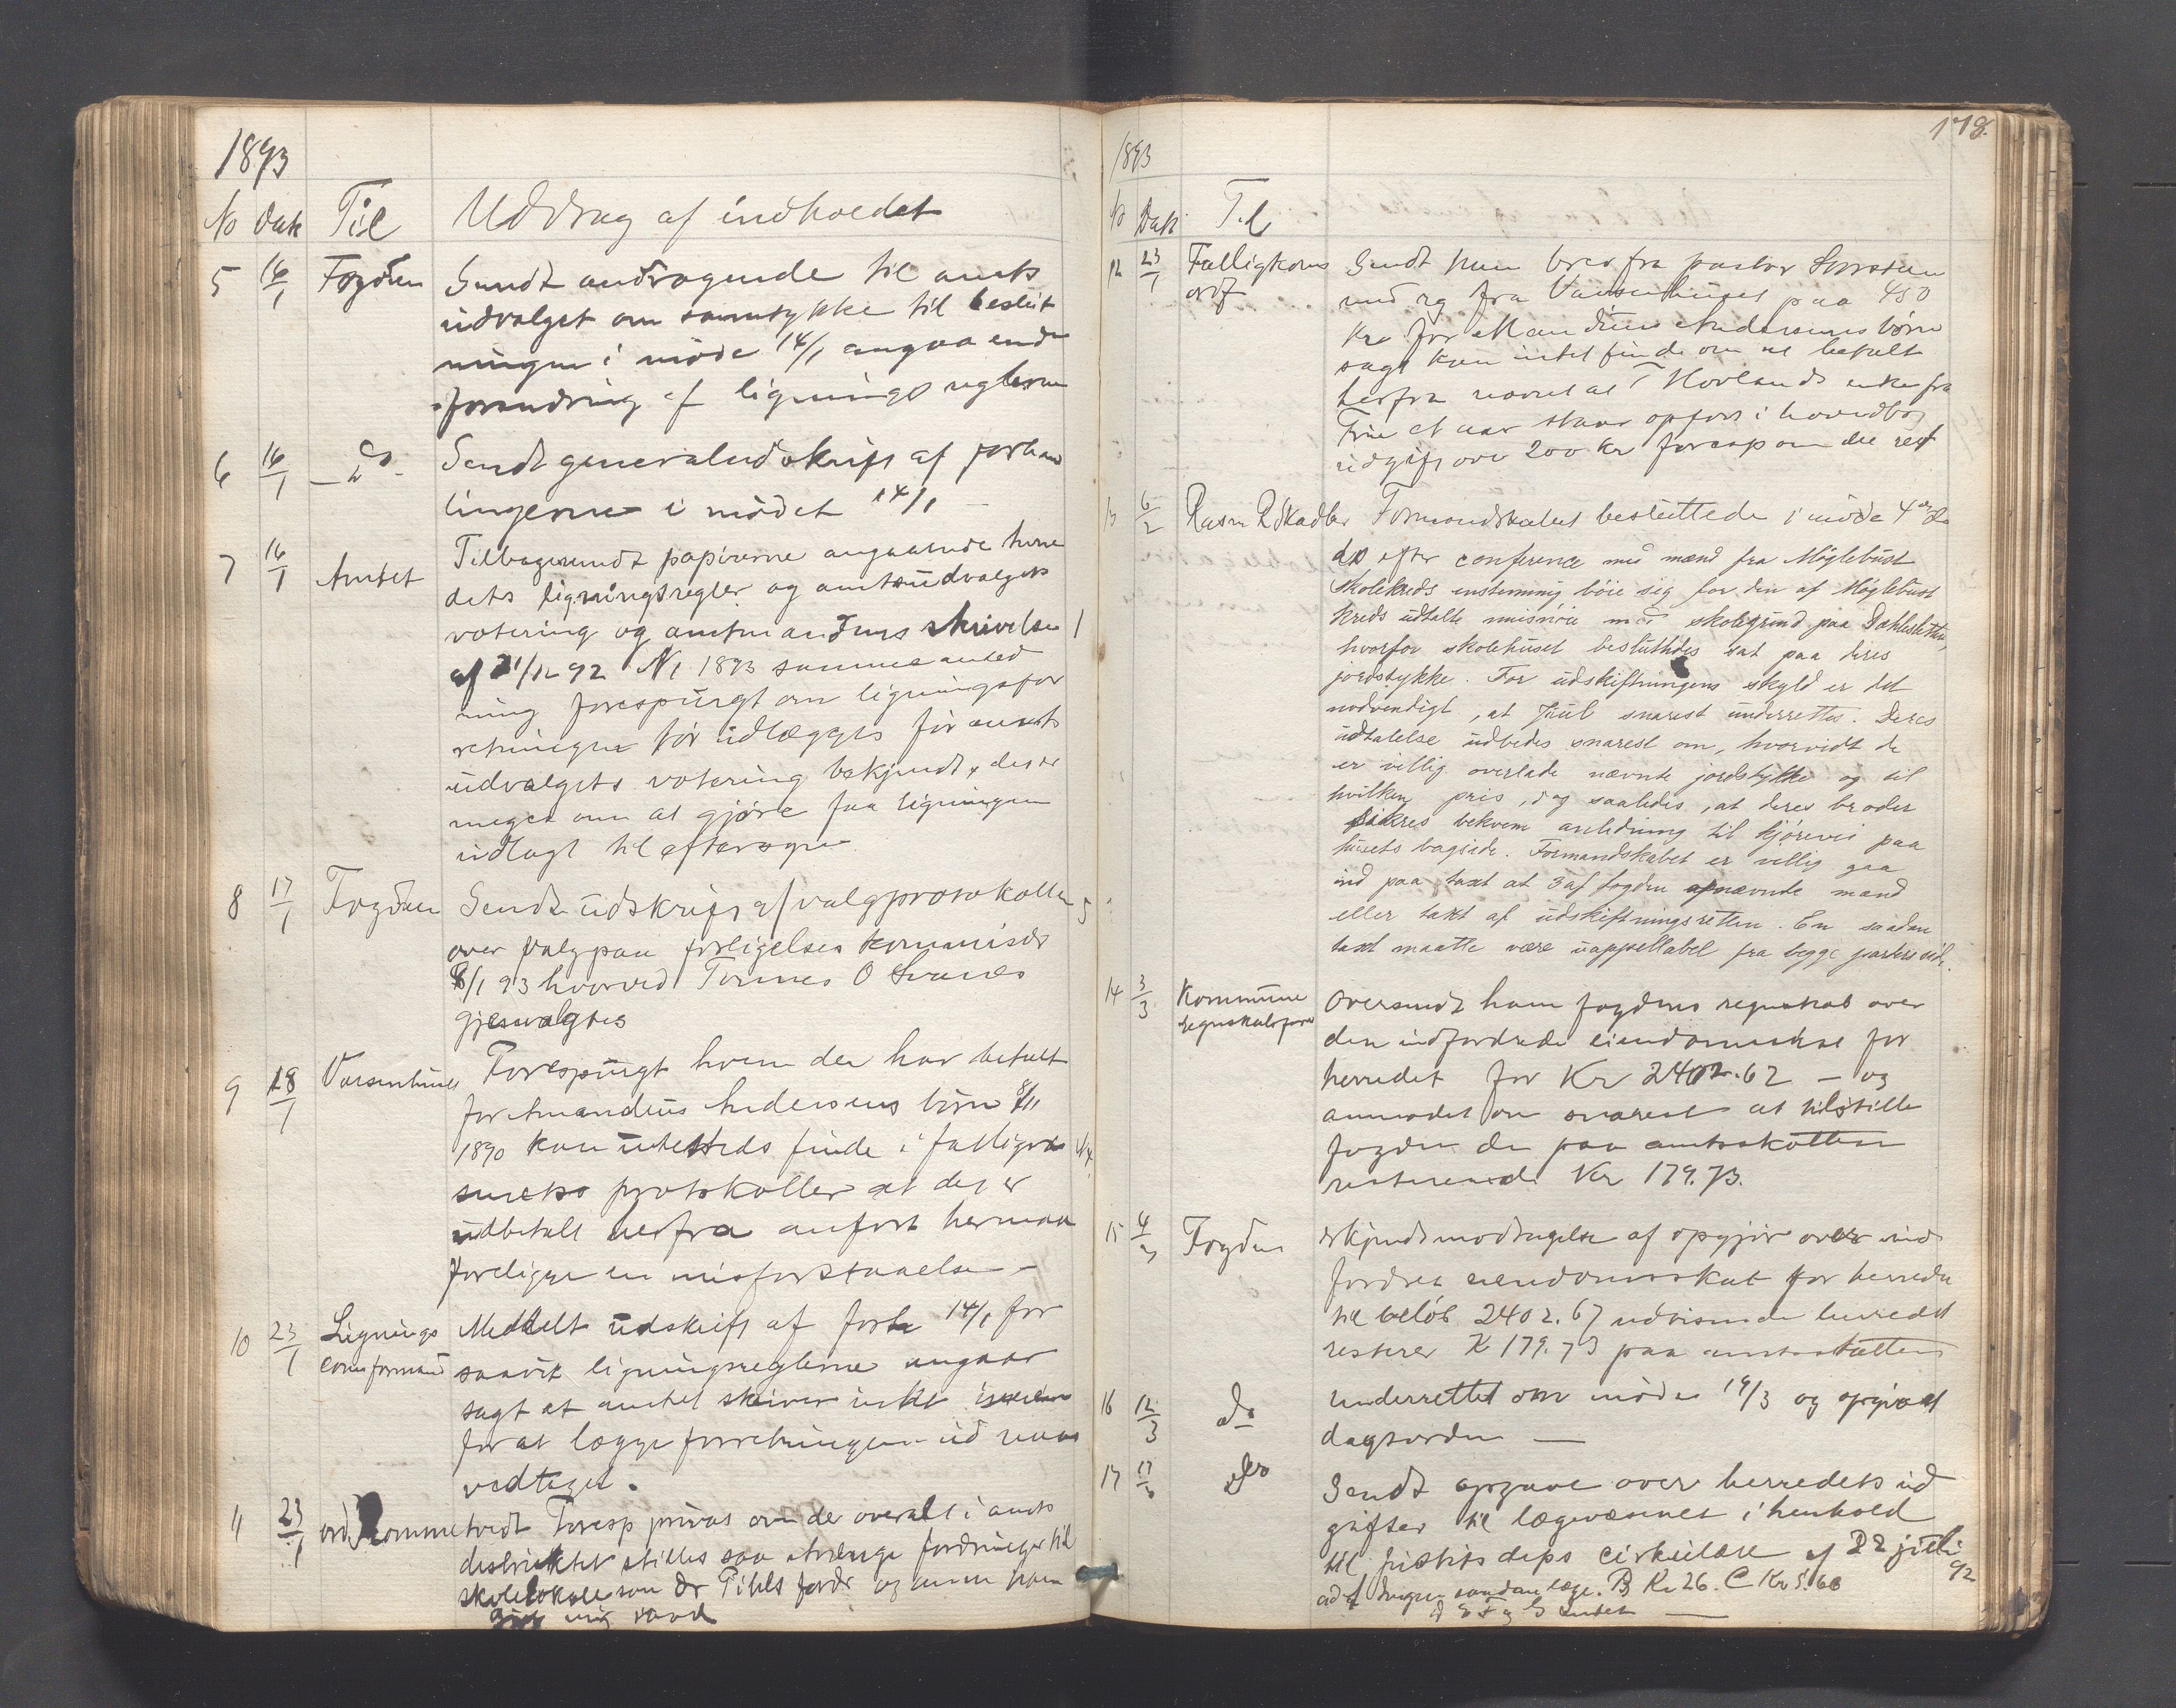 1893
No Dato Til Uddrag af indholdet
5 16/1 Fogden Sendt andragende til amts
udvalget om samtykke til beslut
ningen i møde 14/1 angaaende
forandring af ligningsreglerne
6 16/1 Do Sendt generaludskrift af forhand
lingerne i mødet 14/1
7 16/1 Amtet Tilbagesendt papirerne angaaende herre
dets ligningsregler og amtsudvalgets
votering og amtmandens skrivelse
af 31/12 92 No 1 1893 samme anled
ning forespurgt om ligningsfor
retningen bør udlægges før amts
udvalgets votering bekjendt, der er
meget om at gjøre faa ligningen
udlagt til eftersyn
8 17/1 Fogden Sendt udskrift af valgprotokollen
over valg paa forligelseskommisær
8/1 93 hvorved Tønnes O Svanes
gjenvalgtes
9 18/1 Vaisenhuset Forespurgt hvem der har betalt
for Amandius Andersens børn 8/11
1890 kan intetsteds finde i fattigvæ
senets protokoller at der er
udbetalt herfra anført her maa
foreligge en misforstaaelse –
10 23/1 Lignings
comsformand Meddelt udskrift af forh 14/1 for
saavit ligningsreglerne angaar
sagt at amtet skriver intet
for at lægge forretningen ud
vedtaget.
11 23/1 ordf Tommetvedt Foresp privat om der overalt i amts
distriktet stilles saa strænge fordringer til
skolelokale som Dr Pihls fordr og
mig raad
178.
1893
No Dato Til
12 23/1 Fattigkoms
ordf Sendt ham brev fra pastor
med rg fra Vaisenhuset paa 450
Kr for Amandius Andersens børn
sagt kan intet finde om at betalt
herfra nævnt at T Hovlands enke fra
Frue et aar staar opført i hovedbog
udgift over 200 Kr foresp om det ret
13 6/2 Rasm R Skadber Formandskabet besluttede i møde 4de
ds efter conference med mænd fra Møglebust
skolekreds enstemmig bøie sig for den af Møglebust
kreds udtalte misnøie med skolegrund paa Dahlesletten,
hvorfor skolehuset besluttedes sat paa deres
jordstykke. For udskiftningens skyld er det
nødvendigt, at Juul snarest underrettes. Deres
udtalelse udbedes snarest om, hvorvidt de
er villig overlade nævnte jordstykke og til
hvilken pris, dog saaledes, at deres broder
sikres bekvem anledning til kjørevei paa
husets bagside. Formandskabet er villig gaa
ind paa taxt at 3 af fogden opnævnte mænd
eller takt af udskiftningsretten. En saadan
taxt maatte være uappellabel fra begge parters side.
14 3/3 Kommune
regnskabsfører Oversendt ham fogdens regnskab over
den indfordrede eiendomsskat for
herredet for Kr 2402.62 – og
anmodet om snarest at tilstille
fogden de paa amtsskatten
resterende Kr 179.73.
15 4/3 Fogden Erkjendt modtagelse af opgjør over ind
fordret eiendomsskat for herredet
til beløb 2402.67 udvisende herredet
resterer K 179.73 paa amtsskatten
16 12/3 Do Underrettet om møde 19/3 og opgivet
dagsorden —
17 17/3 Do Sendt opgave over herredets ud
gifter til lægevæsenet i henhold
til justitsdeps cirkulære af 22 juli
92
ad A Ingen saadan læge. B Kr 26. C Kr 5.68
D E F og G Intet —